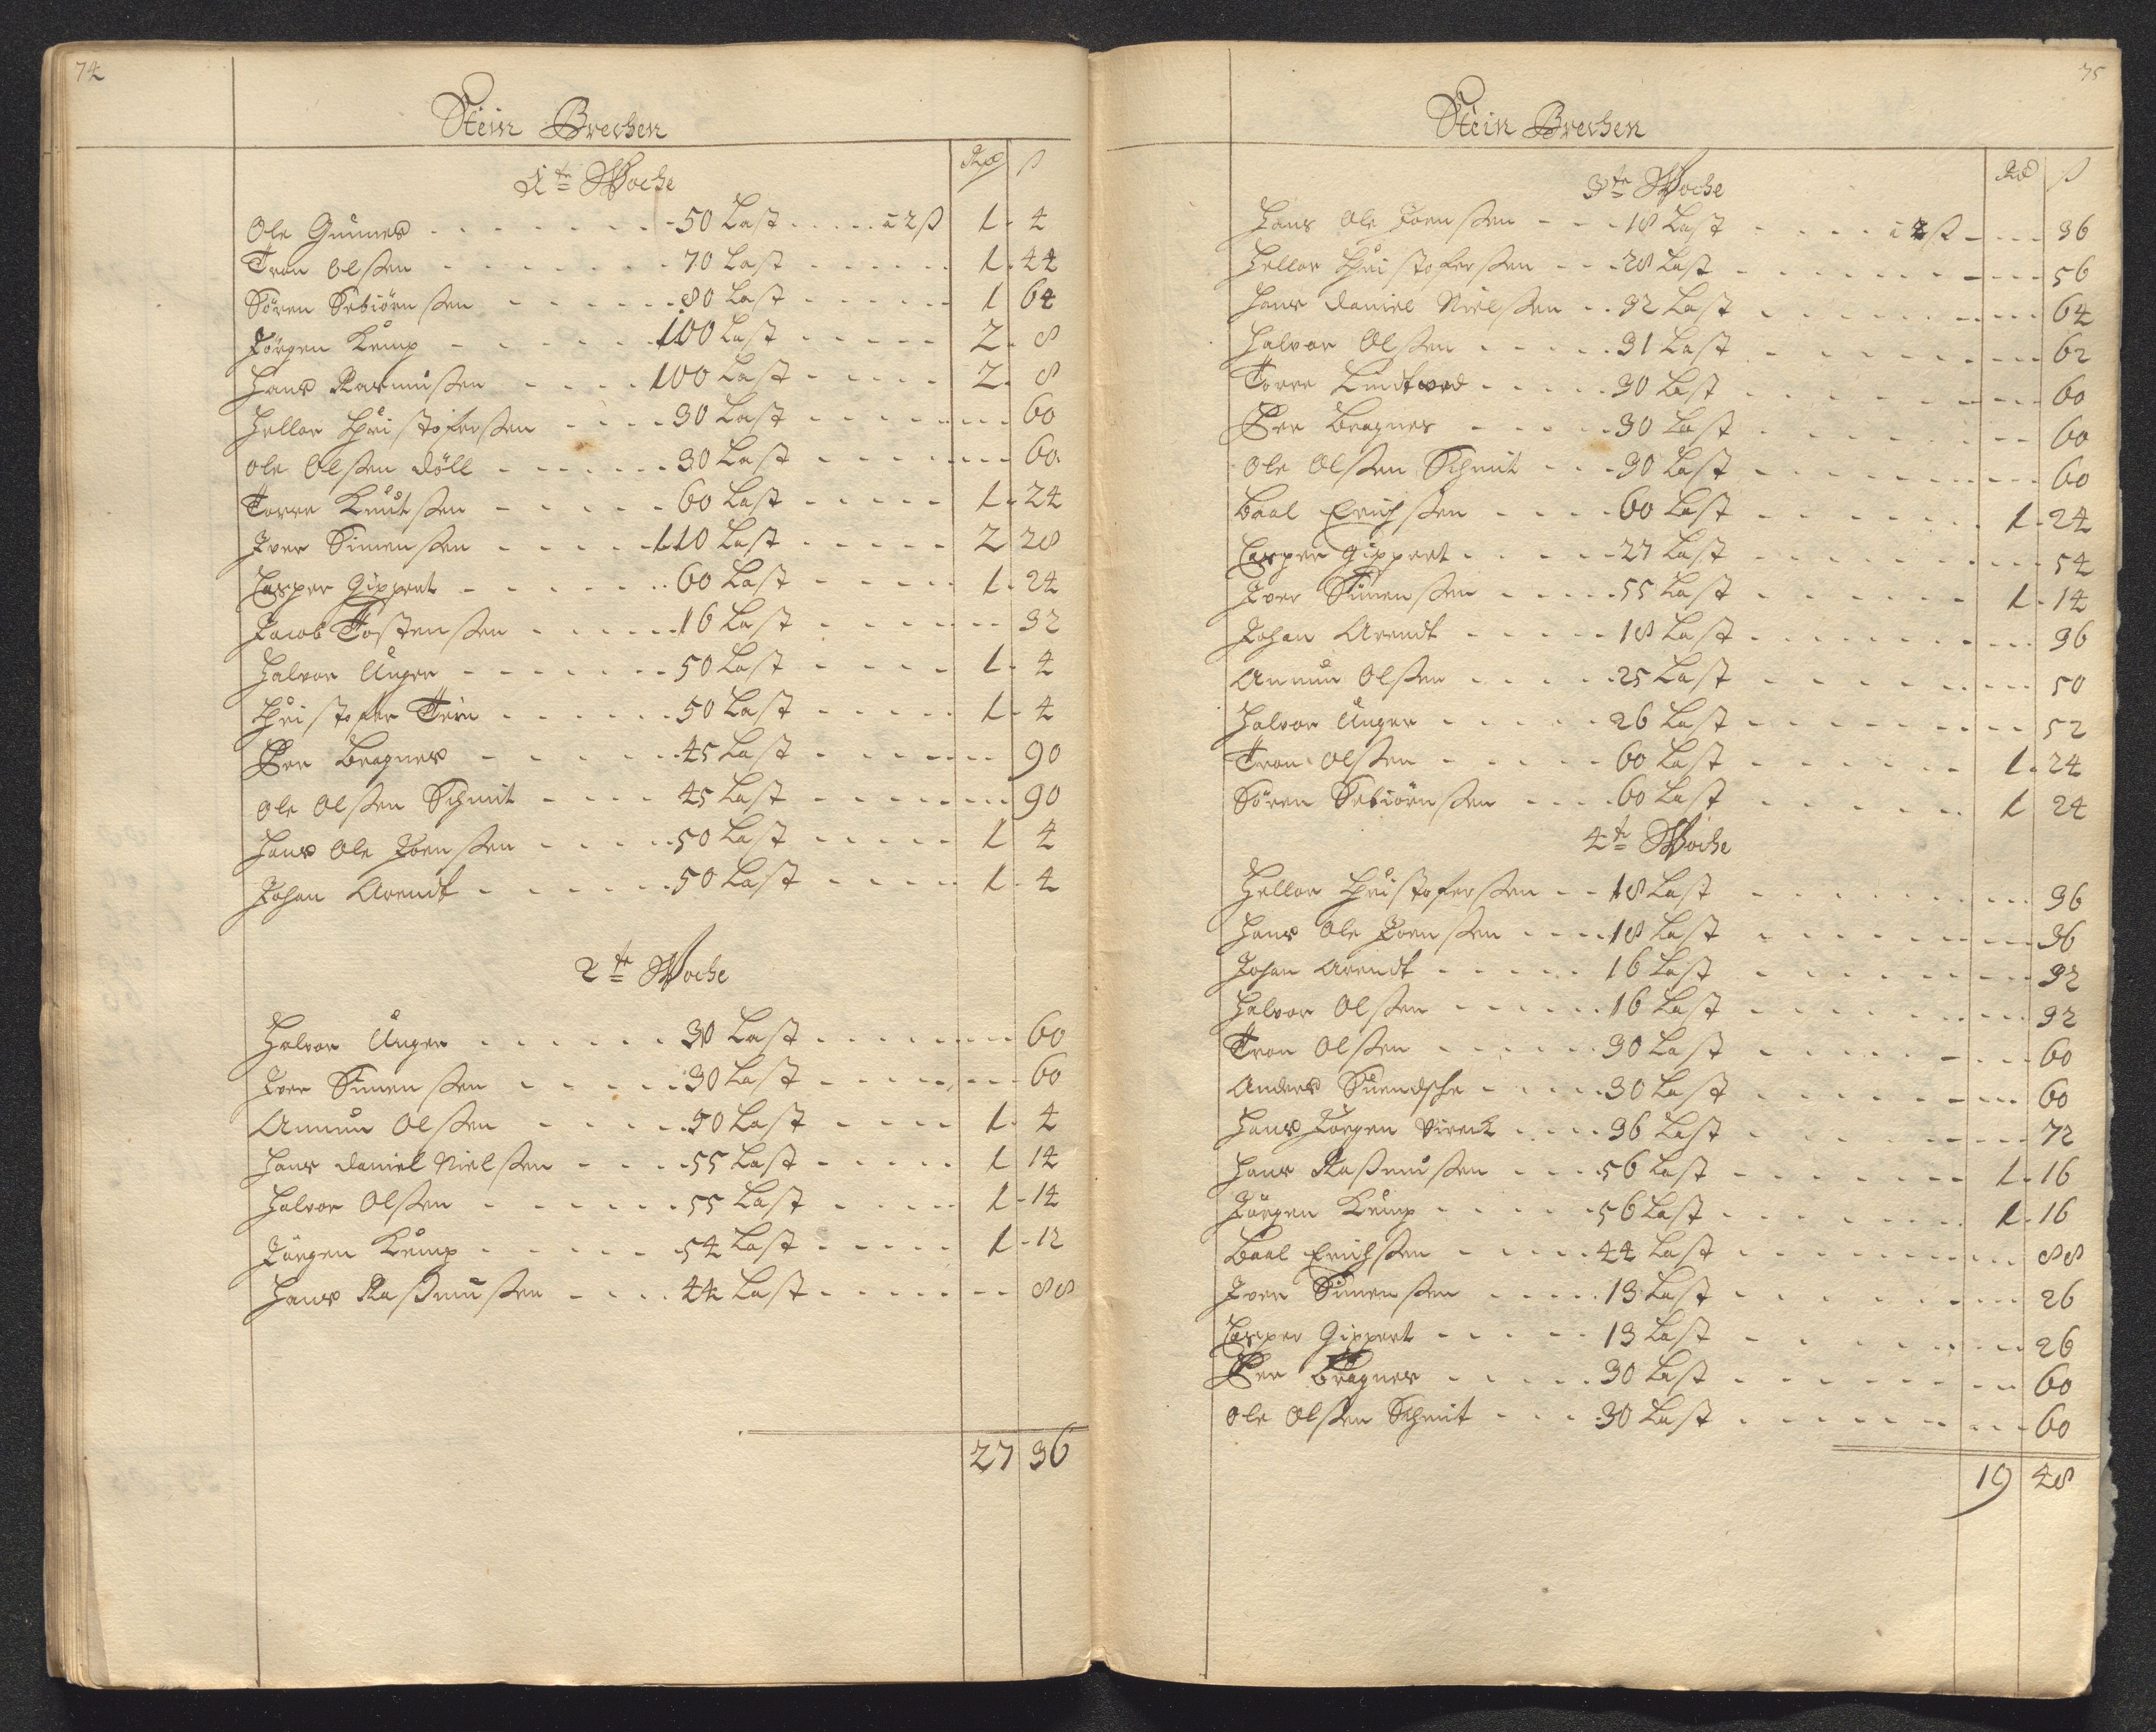 74
Stein Brechen
Rd ß
1te Woche
Ole Gunnes - - - 50 Last - - - a 2 ß 1 - 4
Tron Olssen - - - 70 Last - - - 1 - 44
Sören Sebiörnssen - - - 80 Last - - - 1 64
Jörgen Kemp - - - 100 Last - - - 2 - 8
Hans Rasmussen - - - 100 Last - - - 2 - 8
Hellor Christoferssen - - - 30 Last - - - 60
Ole Olssen Döll - - - 30 Last - - - 60
Torre Knutssen - - - 60 Last - - - 1 - 24
Iver Simenssen - - - 110 Last - - - 2 28
Casper Gippert - - - 60 Last - - - 1 - 24
Jacob Tostenssen - - - 16 Last - - - 32
Halvor Unger - - - 50 Last - - - 1 - 4
Christofer - - - 50 Last - - - 1 - 4
Per Bragnes - - - 45 Last - - - 90
Ole Olssen Schmit - - - 45 Last - - - 90
Hans Ole Joenssen - - - 50 Last - - - 1 4
Johan Arendt - - - 50 Last - - - 1 - 4
2te Woche
Halvor Unger - - - 30 Last - - - 60
Iver Simenssen - - - 30 Last - - - 60
Amun Olssen - - - 50 Last - - - 1 - 4
Hans Daniel Nielssen - - - 55 Last - - - 1 14
Halvor Olssen - - - 55 Last - - - 1 - 14
Jörgen Kemp - - - 54 Last - - - 1 - 12
Hans Rassmussen - - - 44 Last - - - 88
27 36
75
Stein Brechen
Rd ß
3te Woche
Hans Ole Joenssen - - - 18 Last - - - a 2 ß - - - 36
Hellor Christoferssen - - - 28 Last - - - 56
Hans Daniel Nielssen - - - 32 Last - - - 64
Halvor Olssen - - - 31 Last - - - 62
Torre - - - 30 Last - - - 60
Per Bragnes - - - 30 Last - - - 60
Ole Olssen Schmit - - - 30 Last - - - 60
Baal Erichssen - - - 60 Last - - - 1 - 24
Casper Gippert - - - 27 Last - - - 54
Iver Simenssen - - - 55 Last - - - 1 - 14
Johan Arendt - - - 18 Last - - - 36
Amun Olssen - - - 25 Last - - - 50
Halvor Unger - - - 26 Last - - - 52
Tron Olssen - - - 60 Last - - - 1 - 24
Sören Sebiörnssen - - - 60 Last - - - 1 24
4te Woche
Hellor Christoferssen - - - 18 Last - - - 36
Hans Ole Joenssen - - - 18 Last - - - 36
Johan Arendt - - - 16 Last - - - 32
Halvor Olssen - - - 16 Last - - - 32
Tron Olssen - - - 30 Last - - - 60
Anders Suendsche - - - 30 Last - - - 60
Hans Jörgen Vireck - - - 36 Last - - - 72
Hans Rassmussen - - - 56 Last - - - 1 - 16
Jörgen Kemp - - - 56 Last - - - 1 - 16
Baal Erichssen - - - 44 Last - - - 88
Iver Simenssen - - - 13 Last - - - 26
Casper Gippert - - - 13 Last - - - 26
Per Bragnes - - - 30 Last - - - 60
Ole Olssen Schmit - - - 30 Last - - - 60
19 48